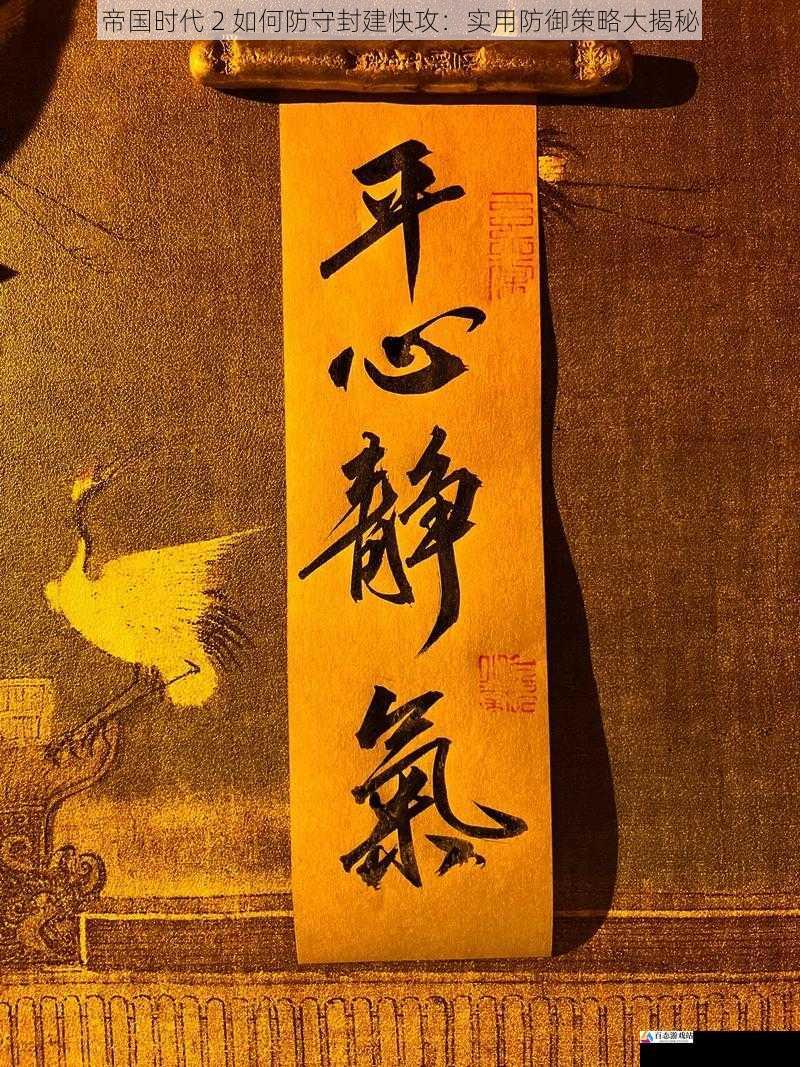 帝国时代 2 如何防守封建快攻：实用防御策略大揭秘
平
心
静
氣
百态游戏站